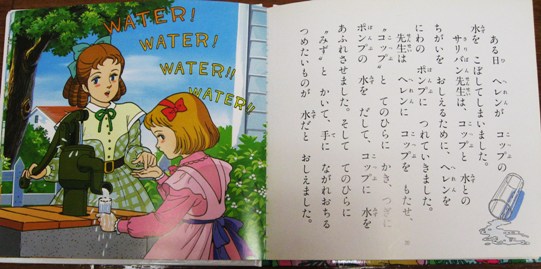 WATER!
WATER!
WATER!!
WATER!!
ある日 ヘレンが コップの
水を こぼしてしまいました。
サリバン先生は、コップと 水との
ちがいを おしえるために、ヘレンを
にわの ポンプに つれていきました。
先生は ヘレンに コップを もたせ、
“コップ”と てのひらに かき、つぎに
ポンプの 水を だして、コップに 水を
あふれさせました。そして てのひらに
“みず”と かいて、手に ながれおちる
つめたいものが 水だと おしえました。